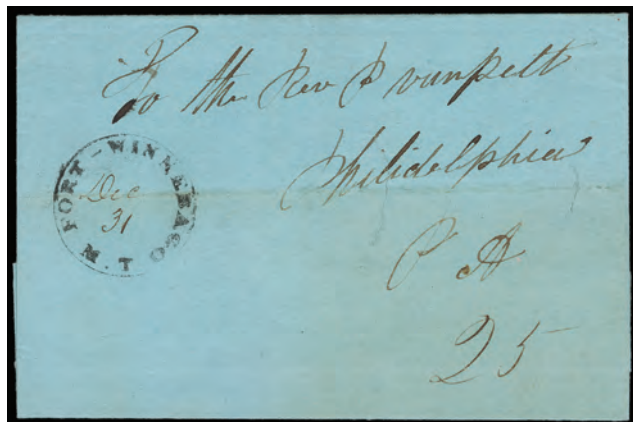 To the Rev P vanpelt
Philidelphia
P A
25
FORT-WINNEBAGO
W.T.
Dec
31